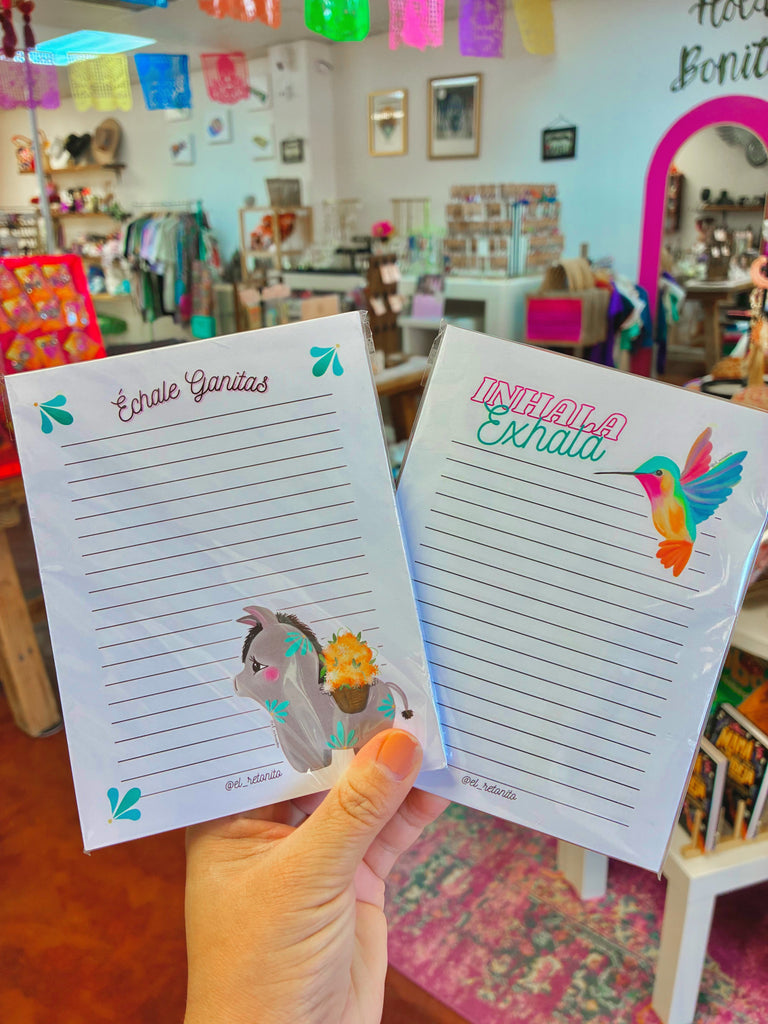 Hola
Bonit
Échale Ganitas
@el_retonito
INHALA
Exhala
@el_retonito